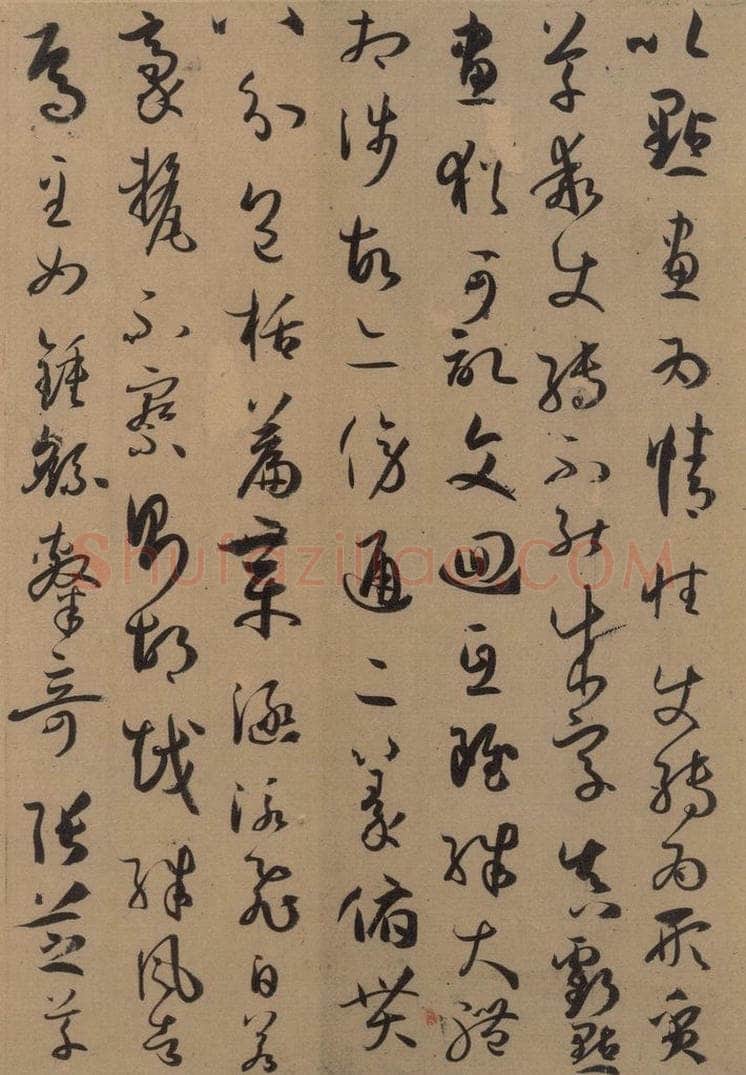 以點畫為情性使轉為形質
草乖使轉不能成字真虧點
畫猶可記文迴互雖殊大體
相涉故亦傍通二篆俯貫
八分包括篇章涵泳飛白若
豪釐不察則胡越殊風者
焉至如鍾繇隸奇張芝草
Shufaziliao.COM